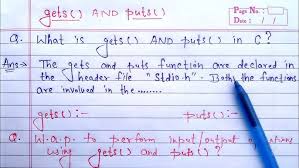 gets() AND puts()
Page No.
Date : / /
Q. What is gets() AND puts() in C?
Ans→ The gets and puts function are declared in
the header file "Stdio.h". Both the functions
are involved in the........
gets() :- puts() :-
Q. W.a.p to perform input/output operations
using gets() and puts() ?